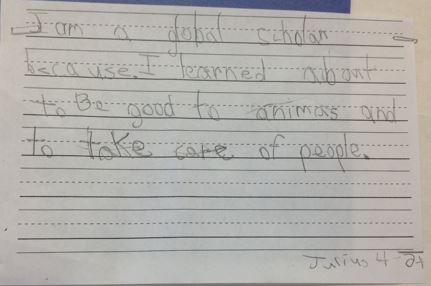 I am a global scholar
because. I learned about
to Be good to animas and
to take care of people.
Julius 4